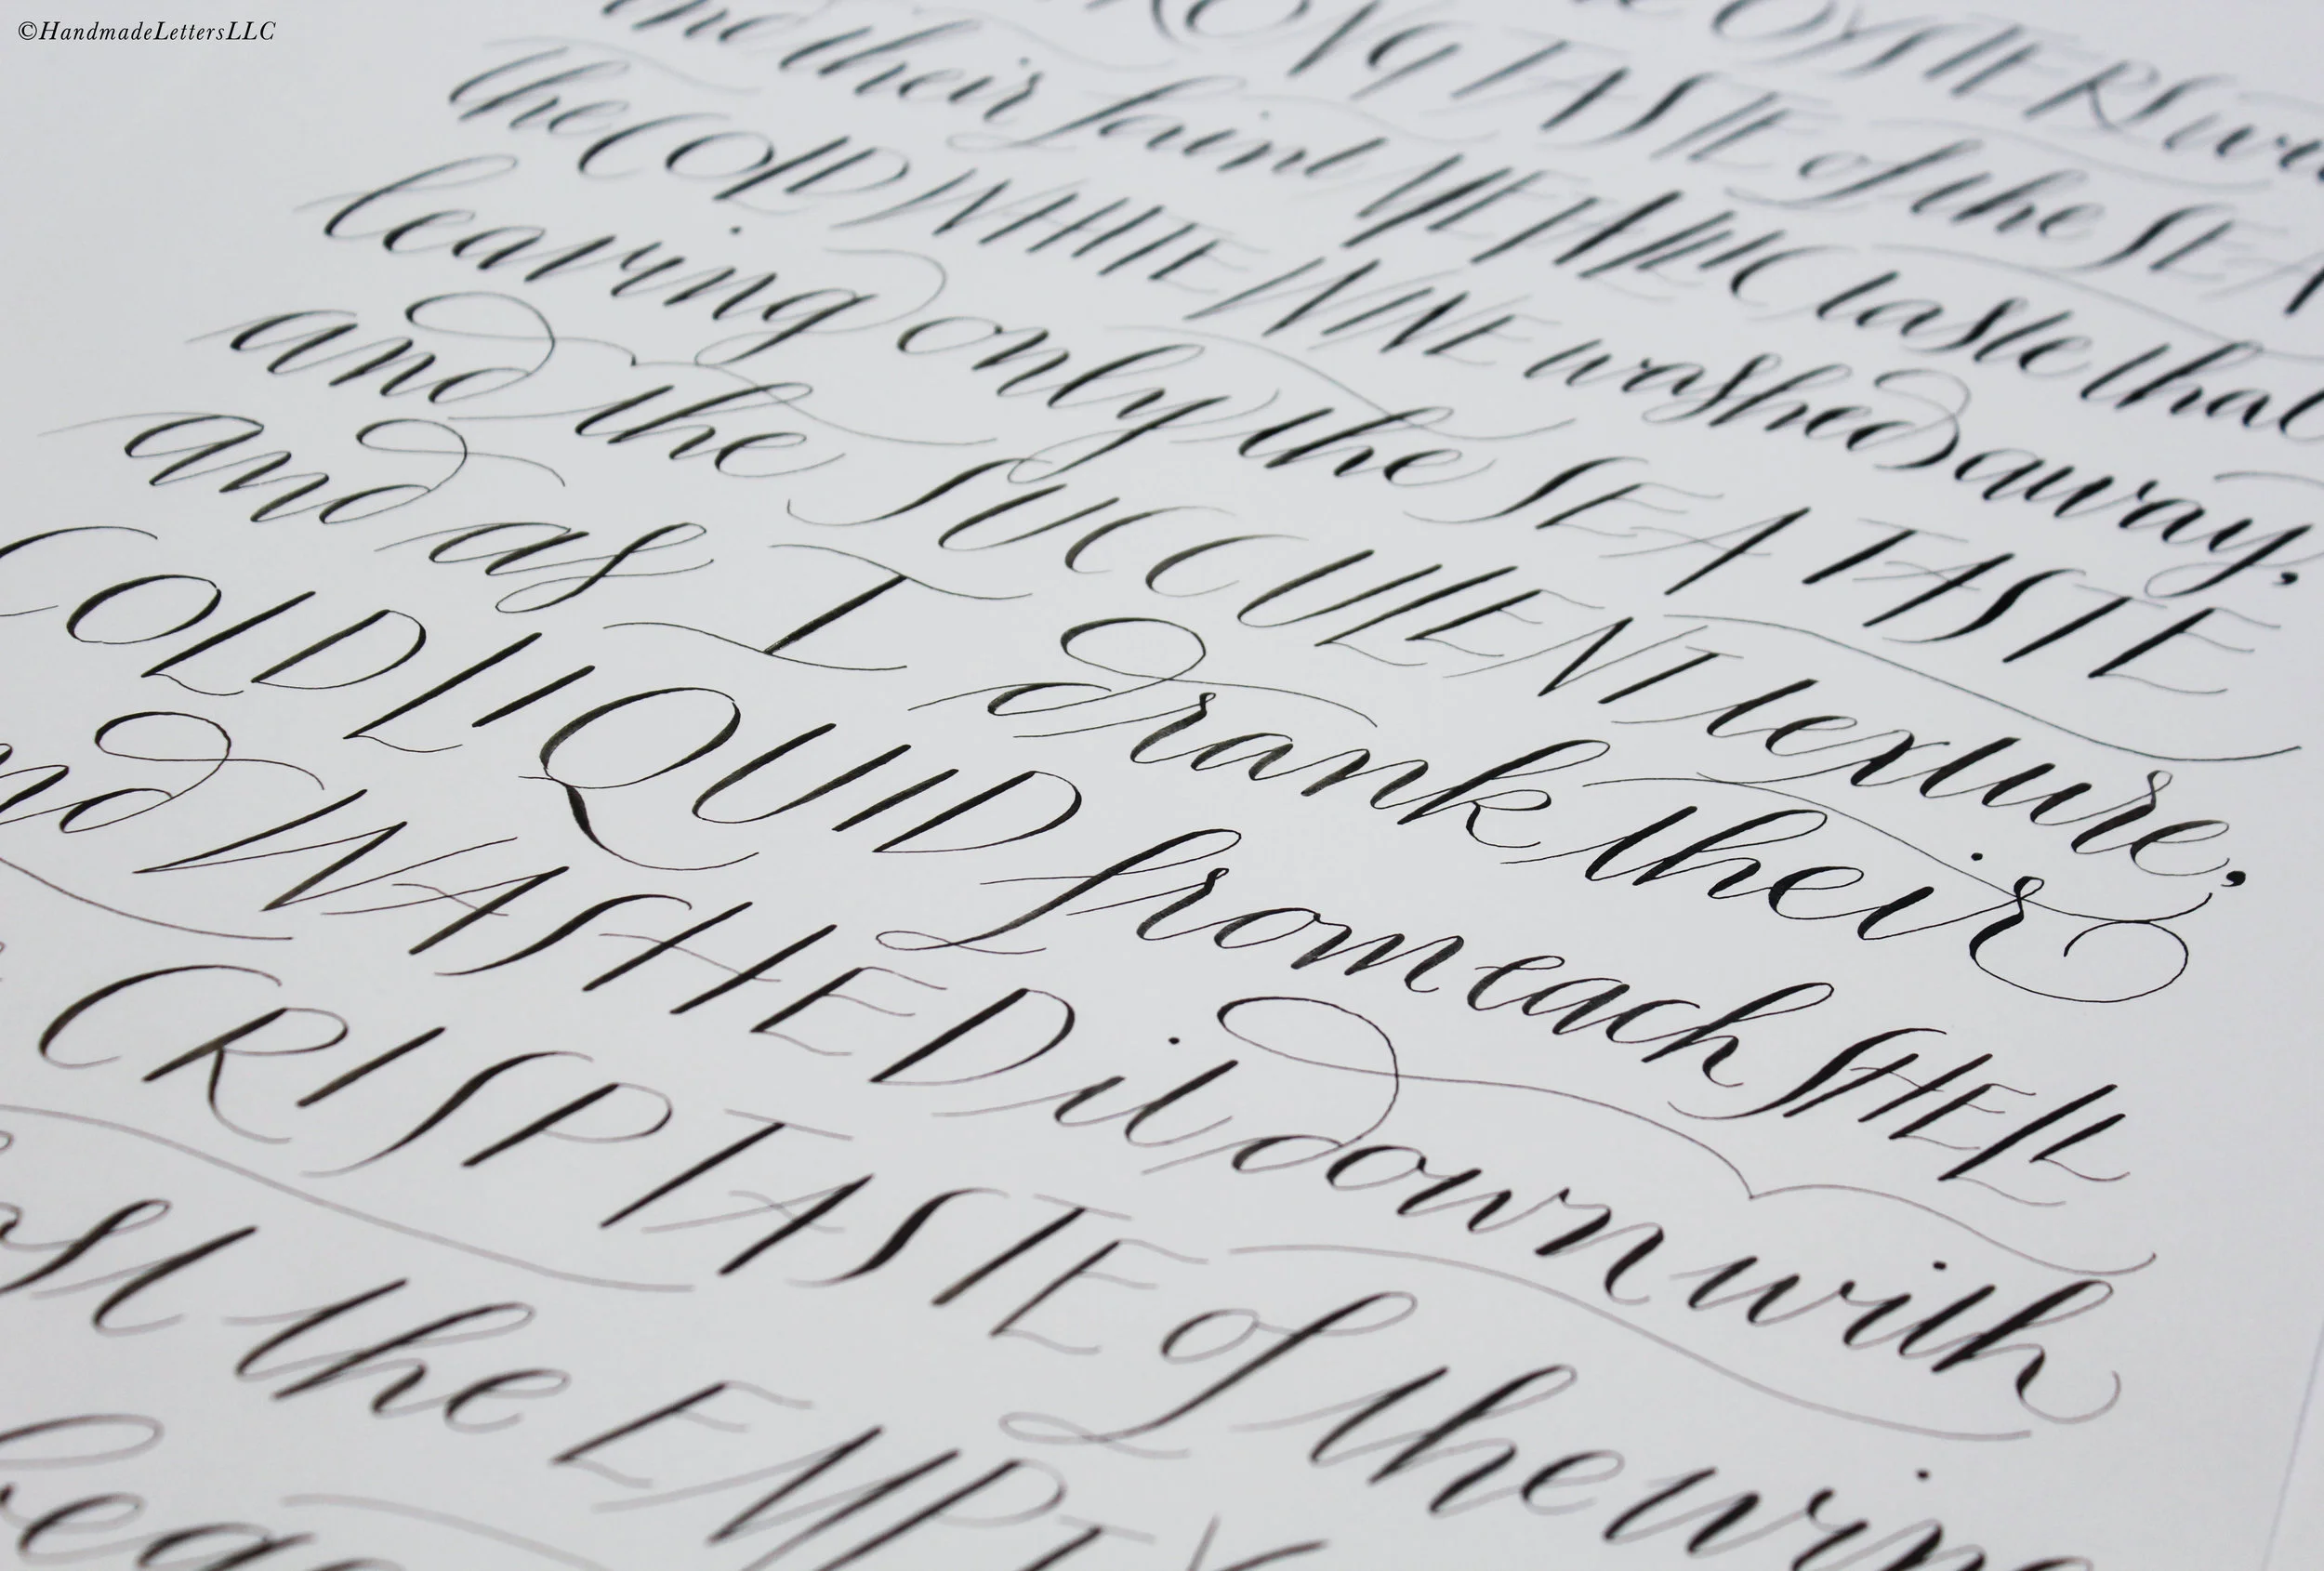 ©HandmadeLettersLLC
OYSTERS
TASTE of the SEA
and their faint METALLIC taste that
the COLD WHITE WINE washed away,
leaving only the SEA TASTE
and the SUCCULENT texture,
and as I drank their
COLD LIQUID from each SHELL
and WASHED it down with
CRISP TASTE of the wine
the EMPTY